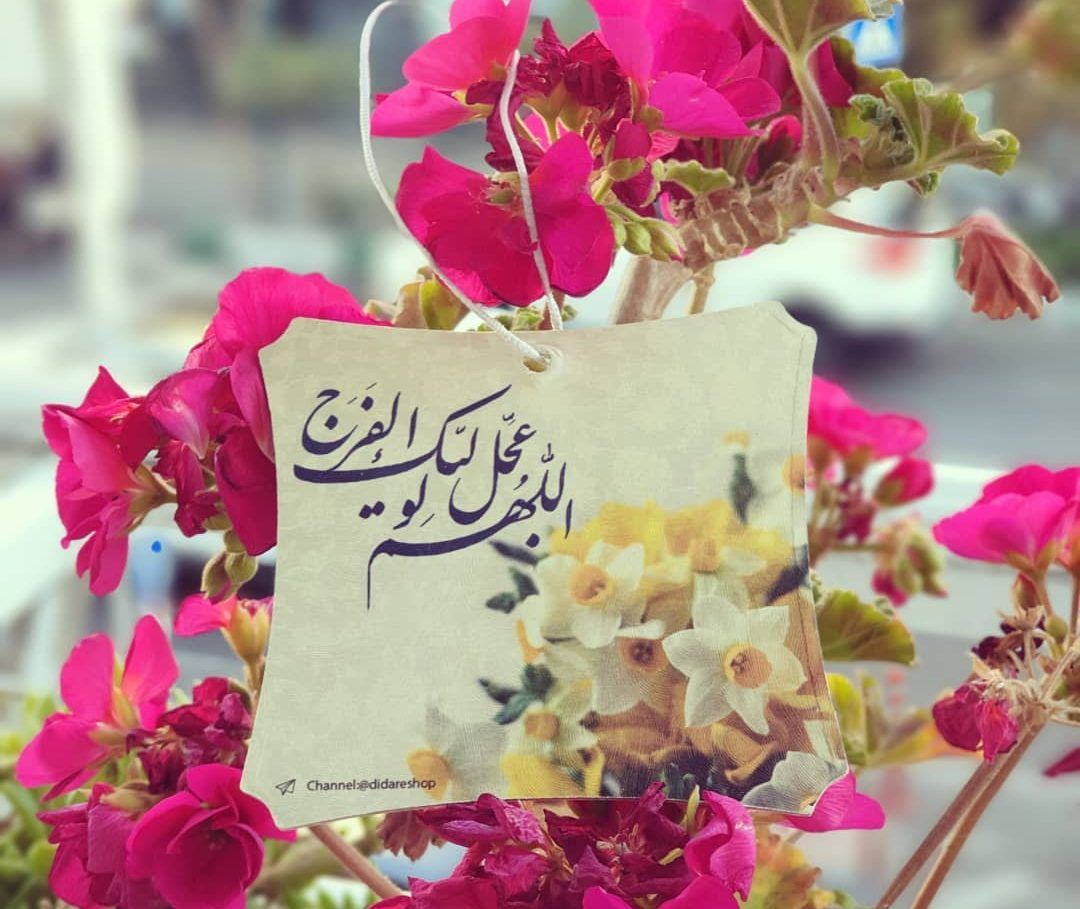 اللّٰهُمَّ عَجِّل لِوَلیِّکَ الفَرَج
Channel:@didareshop